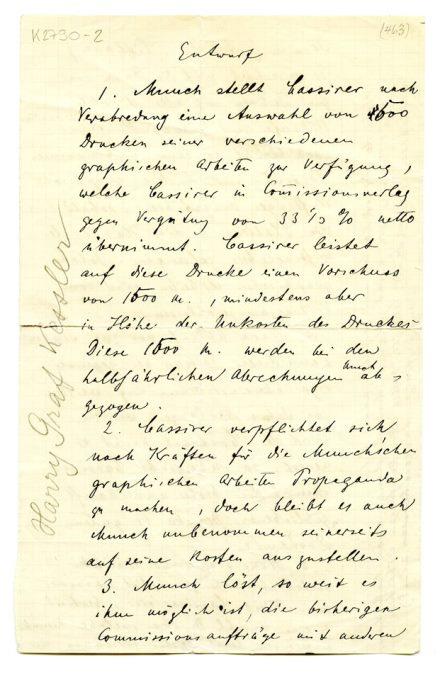 K2730-2
(463)
Entwurf
1. Munch stellt Cassirer nach
Verabredung eine Auswahl von 1500
Drucken seiner verschiedenen
graphischen Arbeiten zur Verfügung,
welche Cassirer in Com̄issionsverlag
gegen Vergütung von 33⅓ % netto
übernimmt. Cassirer leistet
auf diese Drucke einen Vorschuss
von 1500 M., mindestens aber
in Höhe der Unkosten des Druckes
Diese 1500 M. werden bei den
halbjährlichen Abrechnungen Munch ab-
gezogen.
2. Cassirer verpflichtet sich
nach Kräften für die Munch'schen
graphischen Arbeiten Propaganda
zu machen, doch bleibt es auch
Munch unbenommen seinerseits
auf seine Kosten auszustellen.
3. Munch löst, so weit es
ihm möglich ist, die bisherigen
Commissionsaufträge mit anderen
Harry Graf Kessler